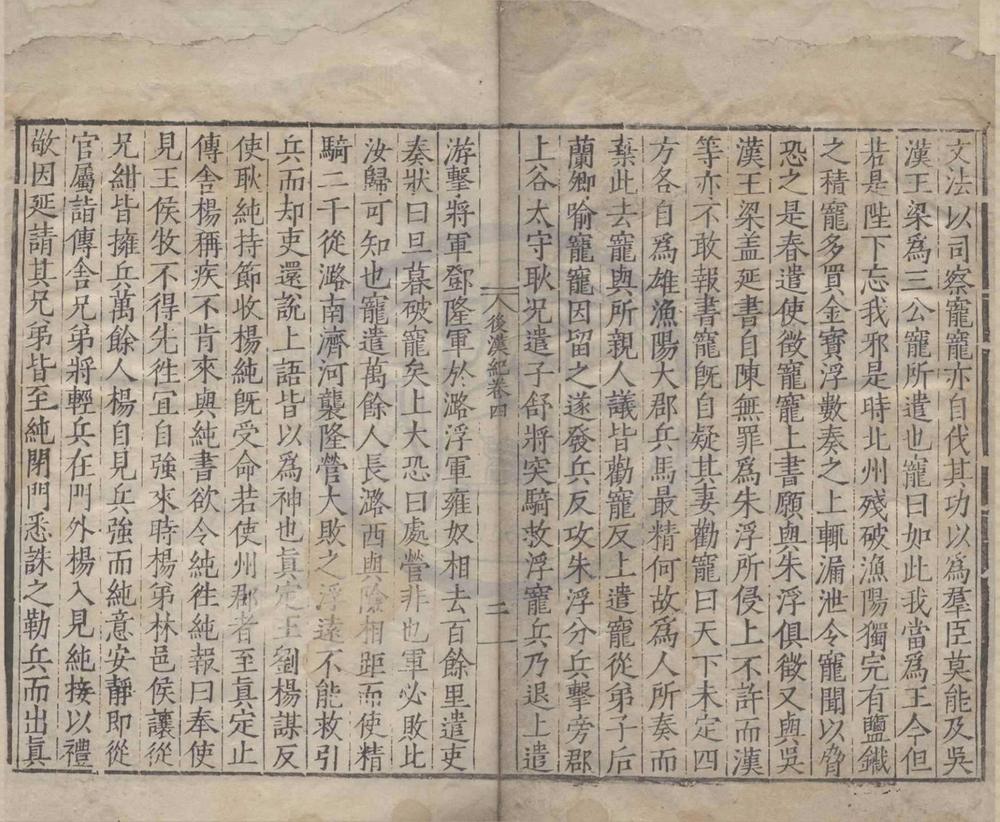 文法以司察寵寵亦自伐其功以為羣臣莫能及吳
漢王梁為三公寵所遣也寵曰如此我當為王今但
若是陛下忘我邪是時北州殘破漁陽獨完有鹽鐵
之積寵多買金寶浮數奏之上輒漏泄令寵聞以脅
恐之是春遣使徵寵寵上書願與朱浮俱徵又與吳
漢王梁盖延書自陳無罪為朱浮所侵上不許而漢
等亦不敢報書寵既自疑其妻勸寵曰天下未定四
方各自為雄漁陽大郡兵馬最精何故為人所奏而
棄此去寵與所親人議皆勸寵反上遣寵從弟子后
蘭卿喻寵寵因留之遂發兵反攻朱浮分兵擊旁郡
上谷太守耿況遣子舒將突騎救浮寵兵乃退上遣
後漢紀卷四
二
游擊將軍鄧隆軍於潞浮軍雍奴相去百餘里遣吏
奏狀曰旦暮破寵矣上大恐曰處營非也軍必敗比
汝歸可知也寵遣萬餘人長潞西與隆相距而使精
騎二千從潞南濟河襲隆營大敗之浮遠不能救引
兵而却吏還說上語皆以為神也真定王劉楊謀反
使耿純持節收楊純既受命若使州郡者至真定止
傳舍楊稱疾不肯來與純書欲令純徃純報曰奉使
見王侯牧不得先徃宜自強來時楊弟林邑侯讓從
兄紺皆擁兵萬餘人楊自見兵強而純意安靜即從
官屬詣傳舍兄弟將輕兵在門外楊入見純接以禮
敬因延請其兄弟皆至純閉門悉誅之勒兵而出真